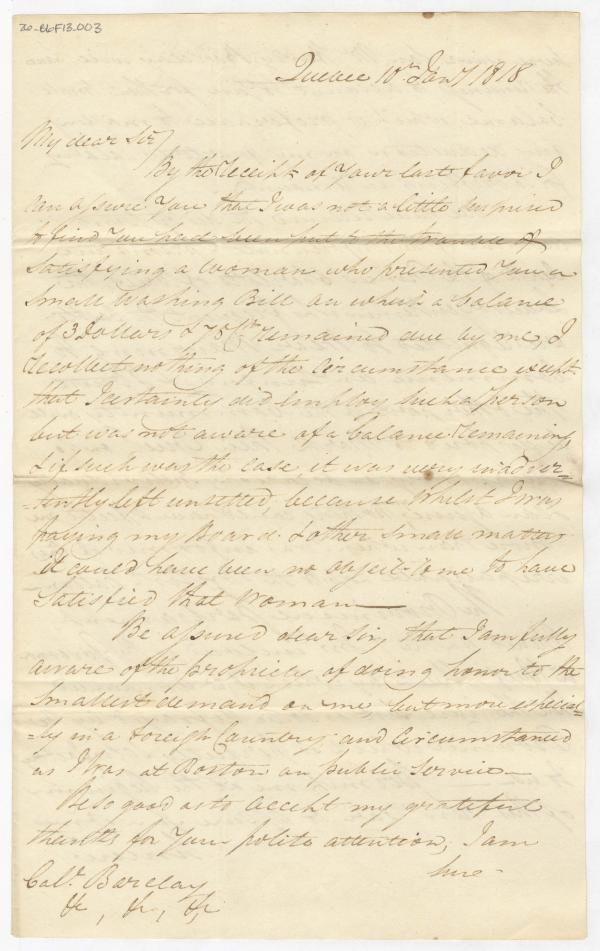 20-B6F13.003
Quebec 10th Jany 1818
My dear Sir
By the receipt of your last favor I
can assure you that I was not a little surprised
to find you had been put to the trouble of
satisfying a woman who presented you a
small Washing Bill on which a balance
of 3 Dollars & 75 Cts remained due by me, I
recollect nothing of the circumstance except
that I certainly did employ such a person
but was not aware of a balance remaining,
& if such was the case, it was very inadver=
=tently left unsettled, because whilst I was
paying my Board & other small matters
it could have been no object to me to have
satisfied that woman —
Be assured dear Sir, that I am fully
aware of the propriety of doing honor to the
smallest demand on me, but more especial=
=ly in a foreign Country and circumstanced
as I was at Boston on public service —
Be so good as to accept my grateful
thanks for your polite attention; I am
sure
Colo. Barclay
&c, &c, &c